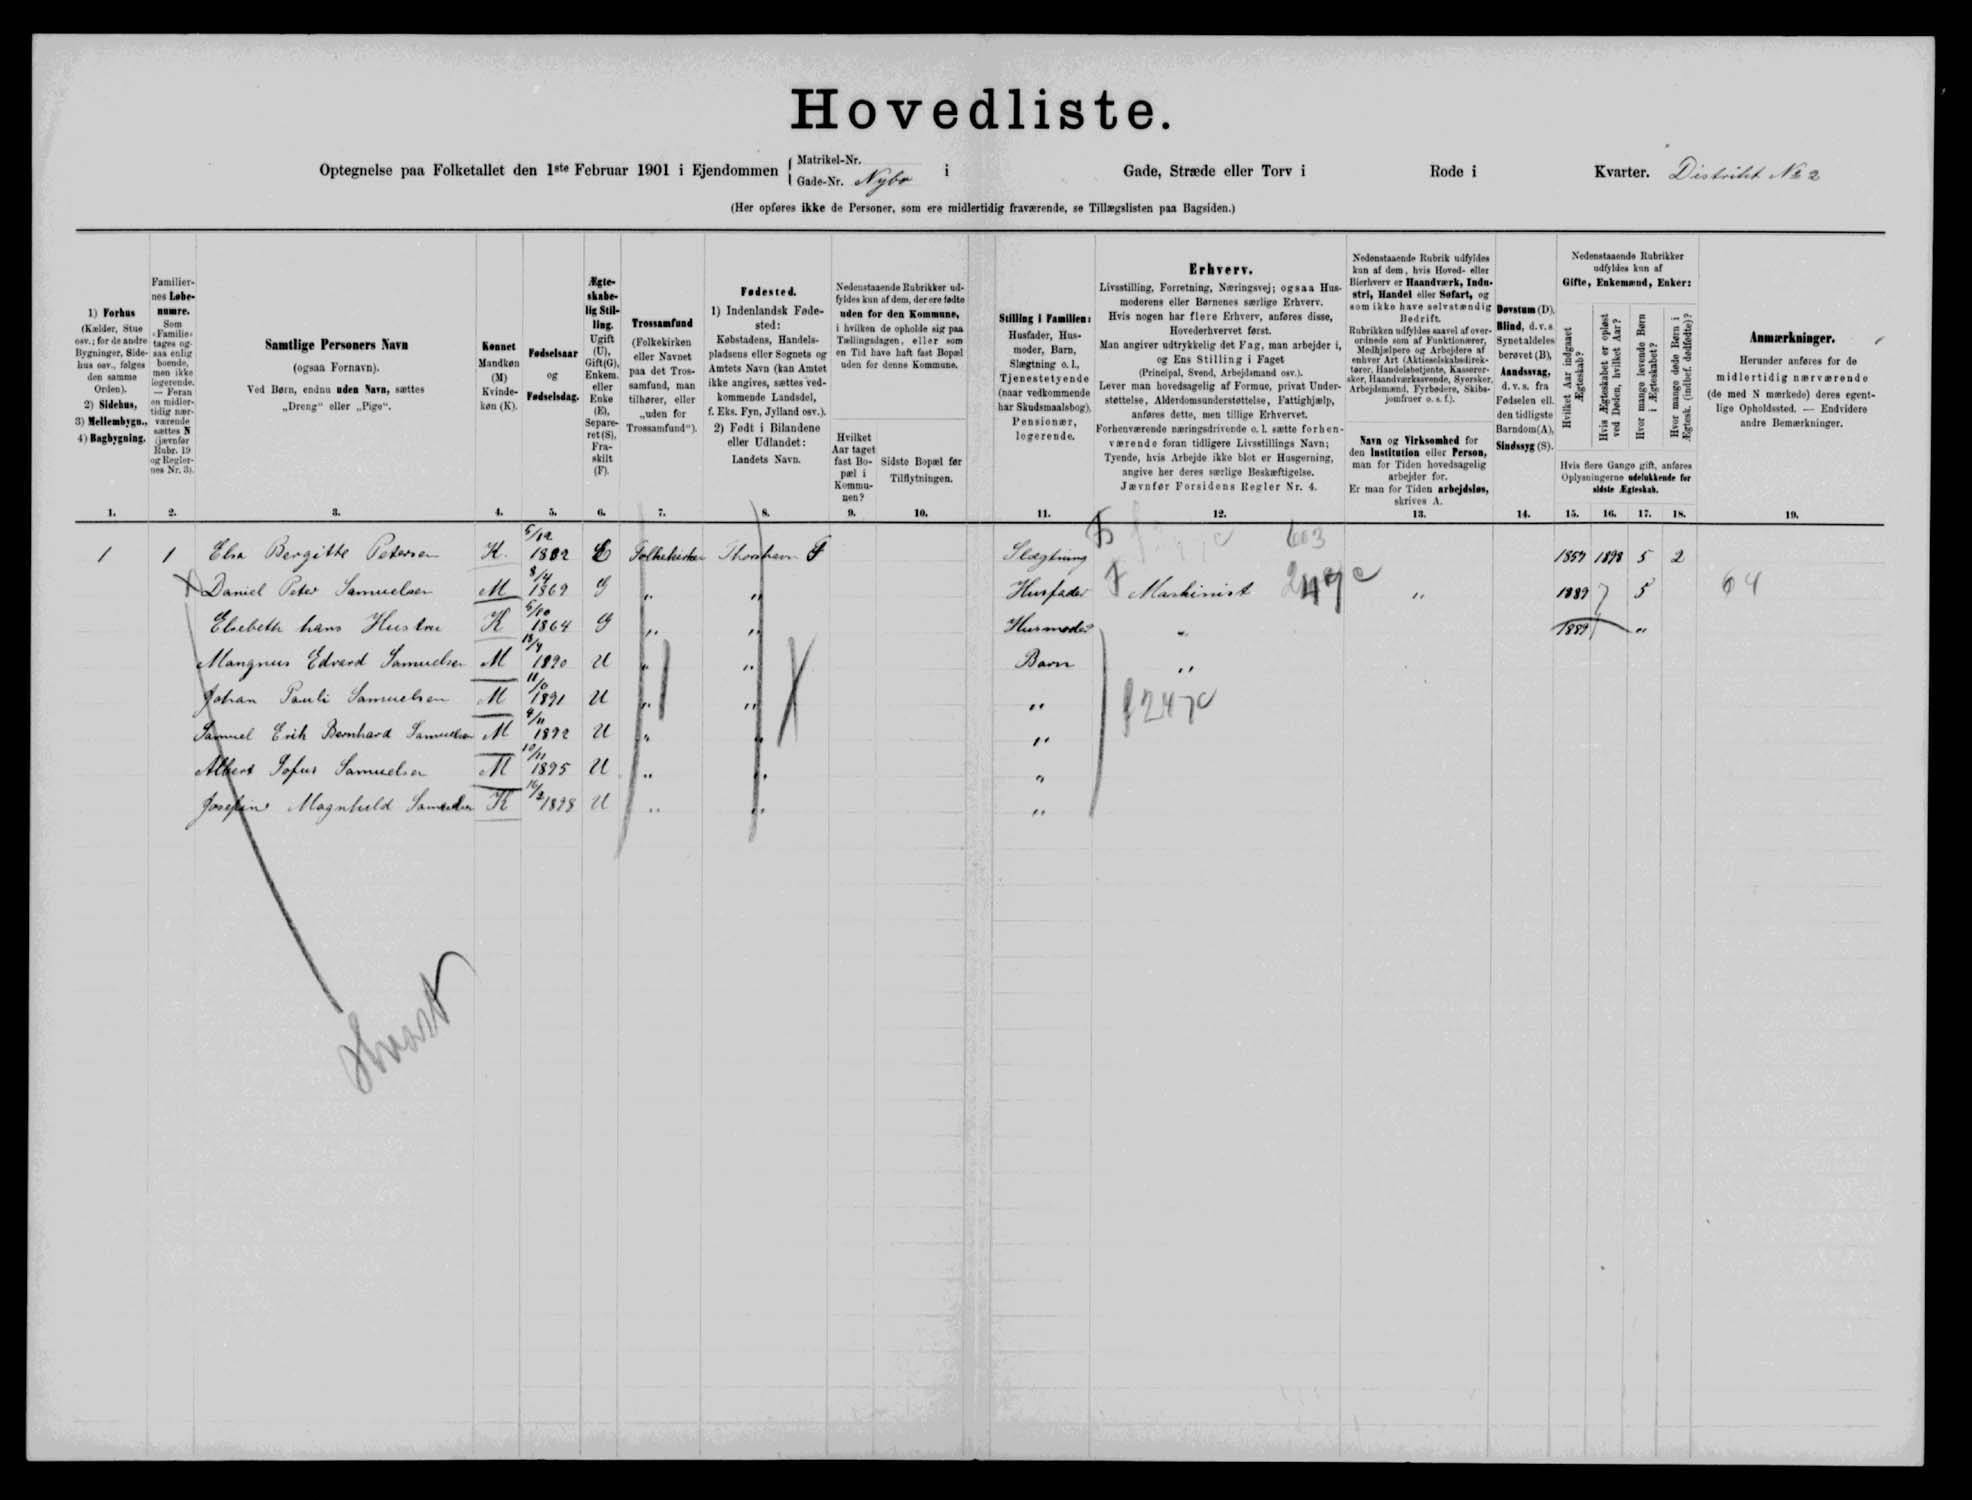 Hovedliste.
Optegnelse paa Folketallet den 1ste Februar 1901 i Ejendommen { Matrikel-Nr.
Gade-Nr. Nybo i Gade, Stræde eller Torv i Rode i Kvarter. Distrikt No 2
(Her opføres ikke de Personer, som ere midlertidig fraværende, se Tillægslisten paa Bagsiden.)
1) Forhus
(Kælder, Stue
osv.; for de andre
Bygninger, Side-
hus osv., følges
den samme
Orden).
2) Sidehus,
3) Mellembygn.,
4) Bagbygning.
Familier-
nes Løbe-
numre.
Som
„Familie“
tages og-
saa enlig
boende,
men ikke
logerende.
— Foran
en midler-
tidig nær-
værende
sættes N
(jævnfør
Rubr. 19
og Regler-
nes Nr. 3).
Samtlige Personers Navn
(ogsaa Fornavn).
Ved Børn, endnu uden Navn, sættes
„Dreng“ eller „Pige“.
Kønnet
Mandkøn
(M)
Kvinde-
køn (K).
Fødselsaar
og
Fødselsdag.
Ægte-
skabe-
lig Stil-
ling.
Ugift
(U),
Gift(G),
Enkem.
eller
Enke
(E),
Separe-
ret(S),
Fra-
skilt
(F).
Trossamfund
(Folkekirken
eller Navnet
paa det Tros-
samfund, man
tilhører, eller
„uden for
Trossamfund“).
Fødested.
1) Indenlandsk Føde-
sted:
Købstadens, Handels-
pladsens eller Sognets og
Amtets Navn (kan Amtet
ikke angives, sættes ved-
kommende Landsdel,
f. Eks. Fyn, Jylland osv.).
2) Født i Bilandene
eller Udlandet:
Landets Navn.
Nedenstaaende Rubrikker ud-
fyldes kun af dem, der ere fødte
uden for den Kommune,
i hvilken de opholde sig paa
Tællingsdagen, eller som
en Tid have haft fast Bopæl
uden for denne Kommune.
Hvilket
Aar taget
fast Bo-
pæl i
Kommu-
nen?
Sidste Bopæl før
Tilflytningen.
Stilling i Familien:
Husfader, Hus-
moder, Barn,
Slægtning o. l.,
Tjenestetyende
(naar vedkommende
har Skudsmaalsbog),
Pensionær,
logerende.
Erhverv.
Livsstilling, Forretning, Næringsvej; ogsaa Hus-
moderens eller Børnenes særlige Erhverv.
Hvis nogen har flere Erhverv, anføres disse,
Hovederhvervet først.
Man angiver udtrykkelig det Fag, man arbejder i,
og Ens Stilling i Faget
(Principal, Svend, Arbejdsmand osv.).
Lever man hovedsagelig af Formue, privat Under-
støttelse, Alderdomsunderstøttelse, Fattighjælp,
anføres dette, men tillige Erhvervet.
Forhenværende næringsdrivende o. l. sætte forhen-
værende foran tidligere Livsstillings Navn;
Tyende, hvis Arbejde ikke blot er Husgerning,
angive her deres særlige Beskæftigelse.
Jævnfør Forsidens Regler Nr. 4.
Nedenstaaende Rubrik udfyldes
kun af dem, hvis Hoved- eller
Bierhverv er Haandværk, Indu-
stri, Handel eller Søfart, og
som ikke have selvstændig
Bedrift.
Rubrikken udfyldes saavel af over-
ordnede som af Funktionærer,
Medhjælpere og Arbejdere af
enhver Art (Aktieselskabsdirek-
tører, Handelsbetjente, Kasserer-
sker, Haandværkssvende, Syersker,
Arbejdsmænd, Fyrbødere, Skibs-
jomfruer o. s. f.).
Navn og Virksomhed for
den Institution eller Person,
man for Tiden hovedsagelig
arbejder for.
Er man for Tiden arbejdsløs,
skrives A.
Døvstum (D),
Blind, d. v. s.
Synet aldeles
berøvet (B),
Aandssvag,
d. v. s. fra
Fødselen ell.
den tidligste
Barndom(A),
Sindssyg (S).
Nedenstaaende Rubrikker
udfyldes kun af
Gifte, Enkemænd, Enker:
Hvilket Aar indgaaet
Ægteskab?
Hvis Ægteskabet er opløst
ved Døden, hvilket Aar?
Hvor mange levende Børn
i Ægteskabet?
Hvor mange døde Børn i
Ægtesk. (indbef. dødfødte)?
Hvis flere Gange gift, anføres
Oplysningerne udelukkende for
sidste Ægteskab.
Anmærkninger.
Herunder anføres for de
midlertidig nærværende
(de med N mærkede) deres egent-
lige Opholdssted. — Endvidere
andre Bemærkninger.
1. 2. 3. 4. 5. 6. 7. 8. 9. 10. 11. 12. 13. 14. 15. 16. 17. 18. 19.
1 1 Elsa Bergitte Petersen K. 5/12 1832 E Folkekirken Thorshavn F Slægtning 603 1857 1898 5 2
Daniel Peter Samuelsen M 8/4 1869 G „ „ Husfader Maskinist 247c „ 1889 5 64
Elsebeth hans Hustru K 6/10 1864 G „ „ Husmoder „ 1889 „
Mangnus Edvard Samuelsen M 18/4 1890 U „ „ Barn „
Johan Pauli Samuelsen M 1891 U „ „ „ f 247c
Samuel Erik Bernhard Samuelsen M 9/11 1892 U „ „ „
Albert Sofus Samuelsen M 10/11 1895 U „ „ „
Josefine Magnhild Samuelsen K 16/2 1898 U „ „ „